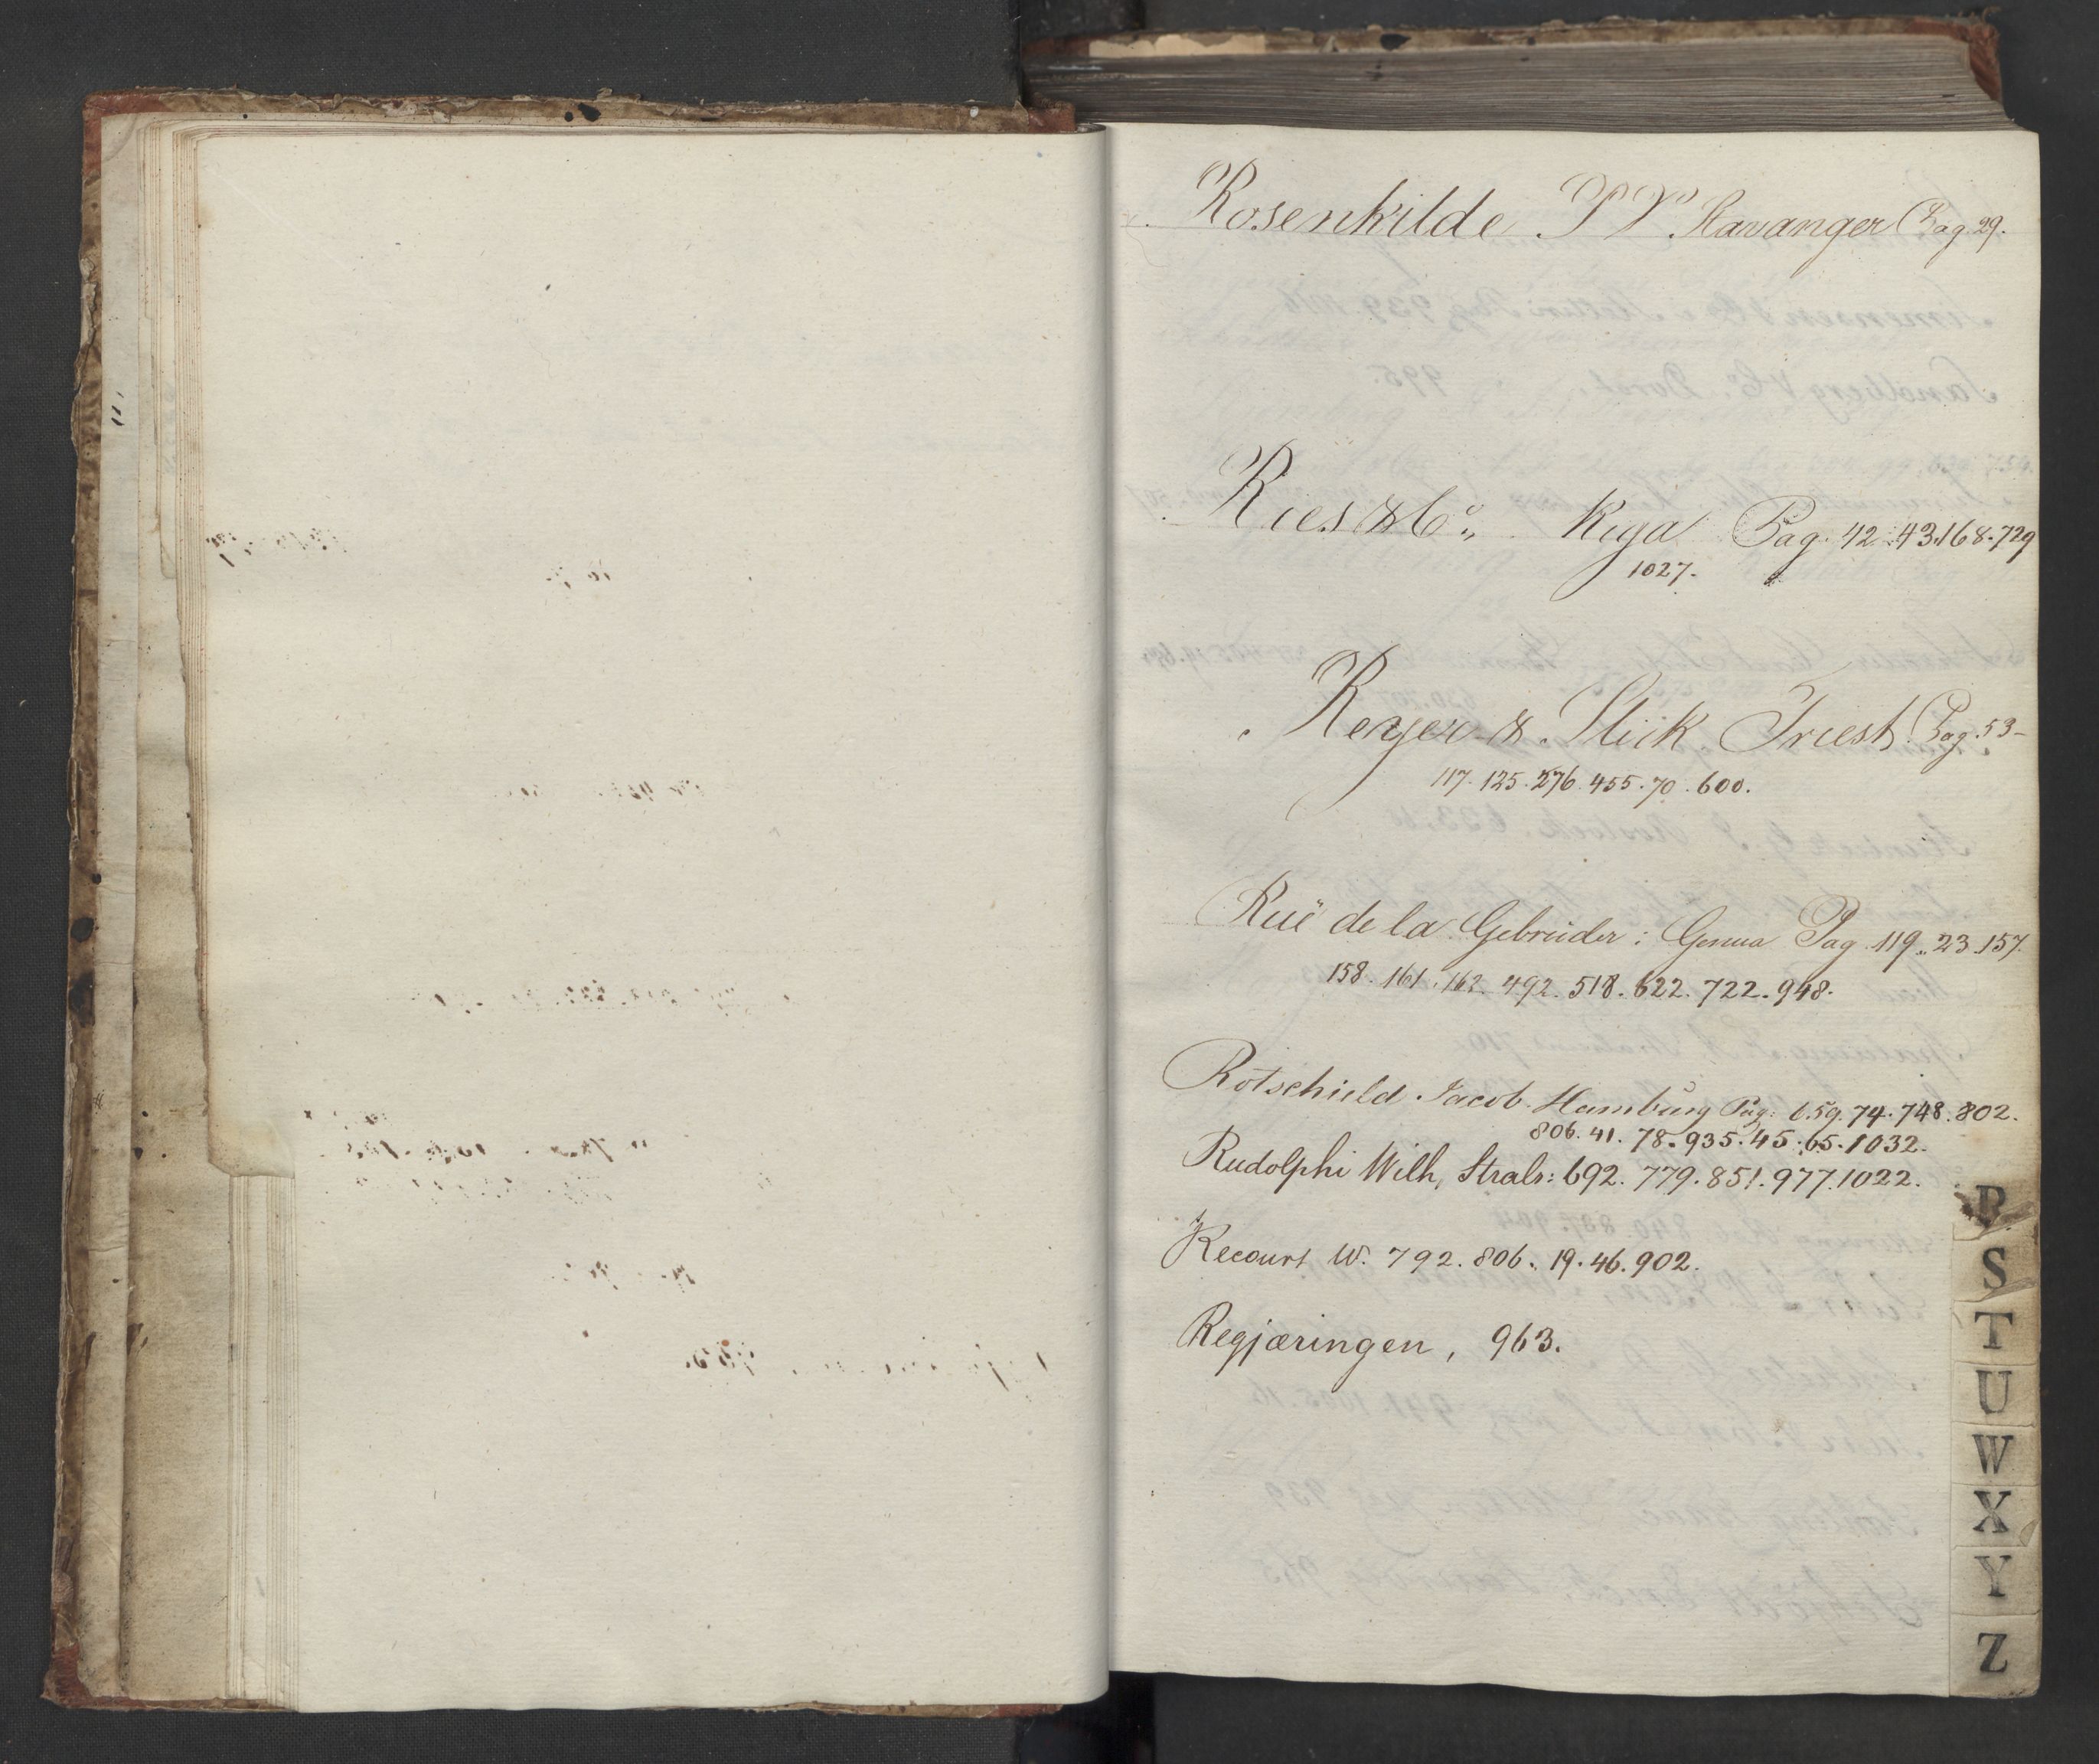 Rosenkilde P V Stavanger Pag 29.
Ries & Co. Riga Pag. 42. 43. 168. 729
1027.
Reyer & Slick Triest Pag. 53-
117. 125. 276. 455. 70. 600.
Rüe de la Gebrüder: Genua Pag. 119. 23. 157.
158. 161. 162. 492. 518. 622. 722. 948.
Rotschield Jacob. Hamburg Pag: 659. 74. 748. 802.
806. 41. 78. 935. 45. 65. 1032.
Rudolphi Wilh, Strals: 692. 779. 851. 977. 1022.
Recourt W. 792. 806. 19. 46. 902.
Regjæringen, 963.
R
S
T
U
W
X
Y
Z